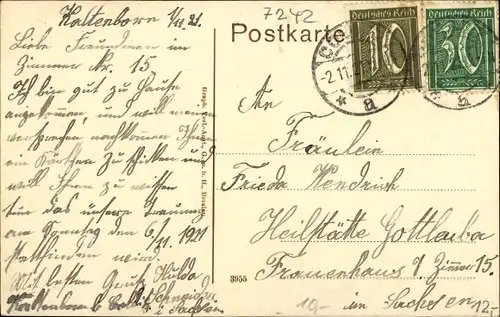 7242
Kaltenborn 1/11.21.
Liebe Freundinnen im
Zimmer Nr. 15
Ich bin gut zu Hause
angekommen, und will mein
versprechen nachkommen Ihnen
ein Kärtchen zu schicken und
will Ihnen zu wissen
tun das unsere Trauung
am Sonntag den 6/11. 1921
stattfinden wird.
Mit besten Gruß Hulda
Schneider
Kaltenborn b.
i. Sachsen
Postkarte
Deutsches Reich
10
Deutsches Reich
30
-2.11.2
* a
An
Fräulein
Frieda Wendrich
Heilstätte Gottleuba
Frauenhaus 1 Zimmer 15.
in Sachsen
3955
10-
12.-